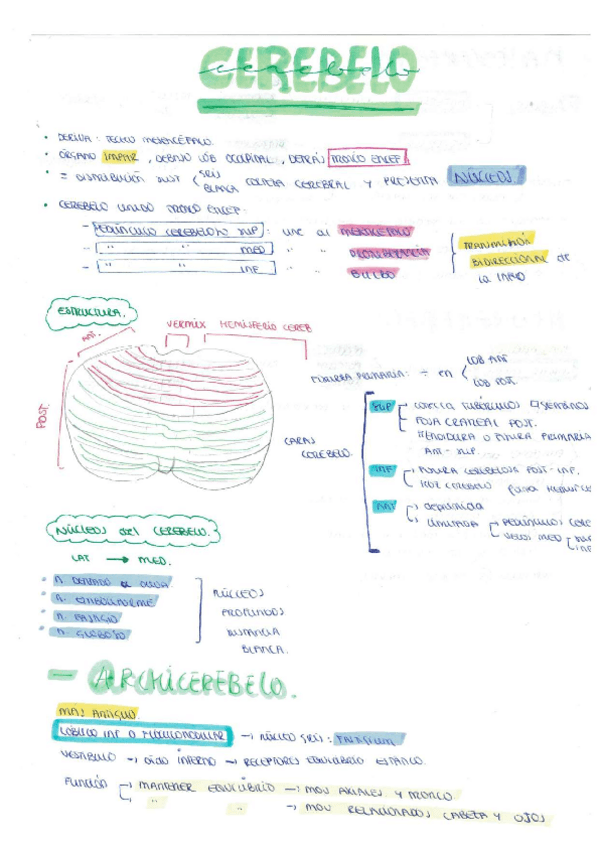 CEREBELO
cerebelo
• DERIVA: TECHO MESENCÉFALO.
• ÓRGANO IMPAR, DEBAJO LÓB OCCIPITAL, DETRÁS TRONCO ENCEF.
• = DISTRIBUCIÓN SUST GRIS
BLANCA CORTEZA CEREBRAL Y PRESENTA NÚCLEOS.
• CEREBELO UNIDO TRONCO ENCEF.
- PEDÚNCULO CEREBELOSO SUP : UNE al MESENCÉFALO
- " " MED " " PROTUBERANCIA
- " " INF " " BULBO
TRANSMISIÓN
BIDIRECCIONAL de
la INFO
ESTRUCTURA.
ANT. VERMIX HEMISFERIO CEREB
POST.
FISURA PRIMARIA: ÷ en LOB ANT
LOB POST.
CARAS
CEREBELO.
SUP
FOSA CRANEAL POST.
HENDIDURA O FISURA PRIMARIA
ANT - SUP.
INF FISURA CEREBELOSA POST - INF.
HOZ CEREBELO
ANT → deprimida
→ LIMITADA → PEDÚNCULOS CERE
→ VELOS MED
NÚCLEOS del CEREBELO.
LAT → MED.
• N. DENTADO OLIVA.
• N. EMBOLIFORME
• N. FASTIGIO
• N. GLOBOSO
NÚCLEOS
PROFUNDOS
SUSTANCIA
BLANCA.
- ARCHICEREBELO.
MÁS ANTIGUO
LÓBULO INF O FLOCULONODULAR → NÚCLEO GRIS: FASTIGIUM
VESTÍBULO → OÍDO INTERNO → RECEPTORES EQUILIBRIO ESTÁTICO.
FUNCIÓN → MANTENER EQUILIBRIO → MOV AXIALES Y TRONCO.
→ " " → MOV RELACIONADOS CABEZA Y OJOS